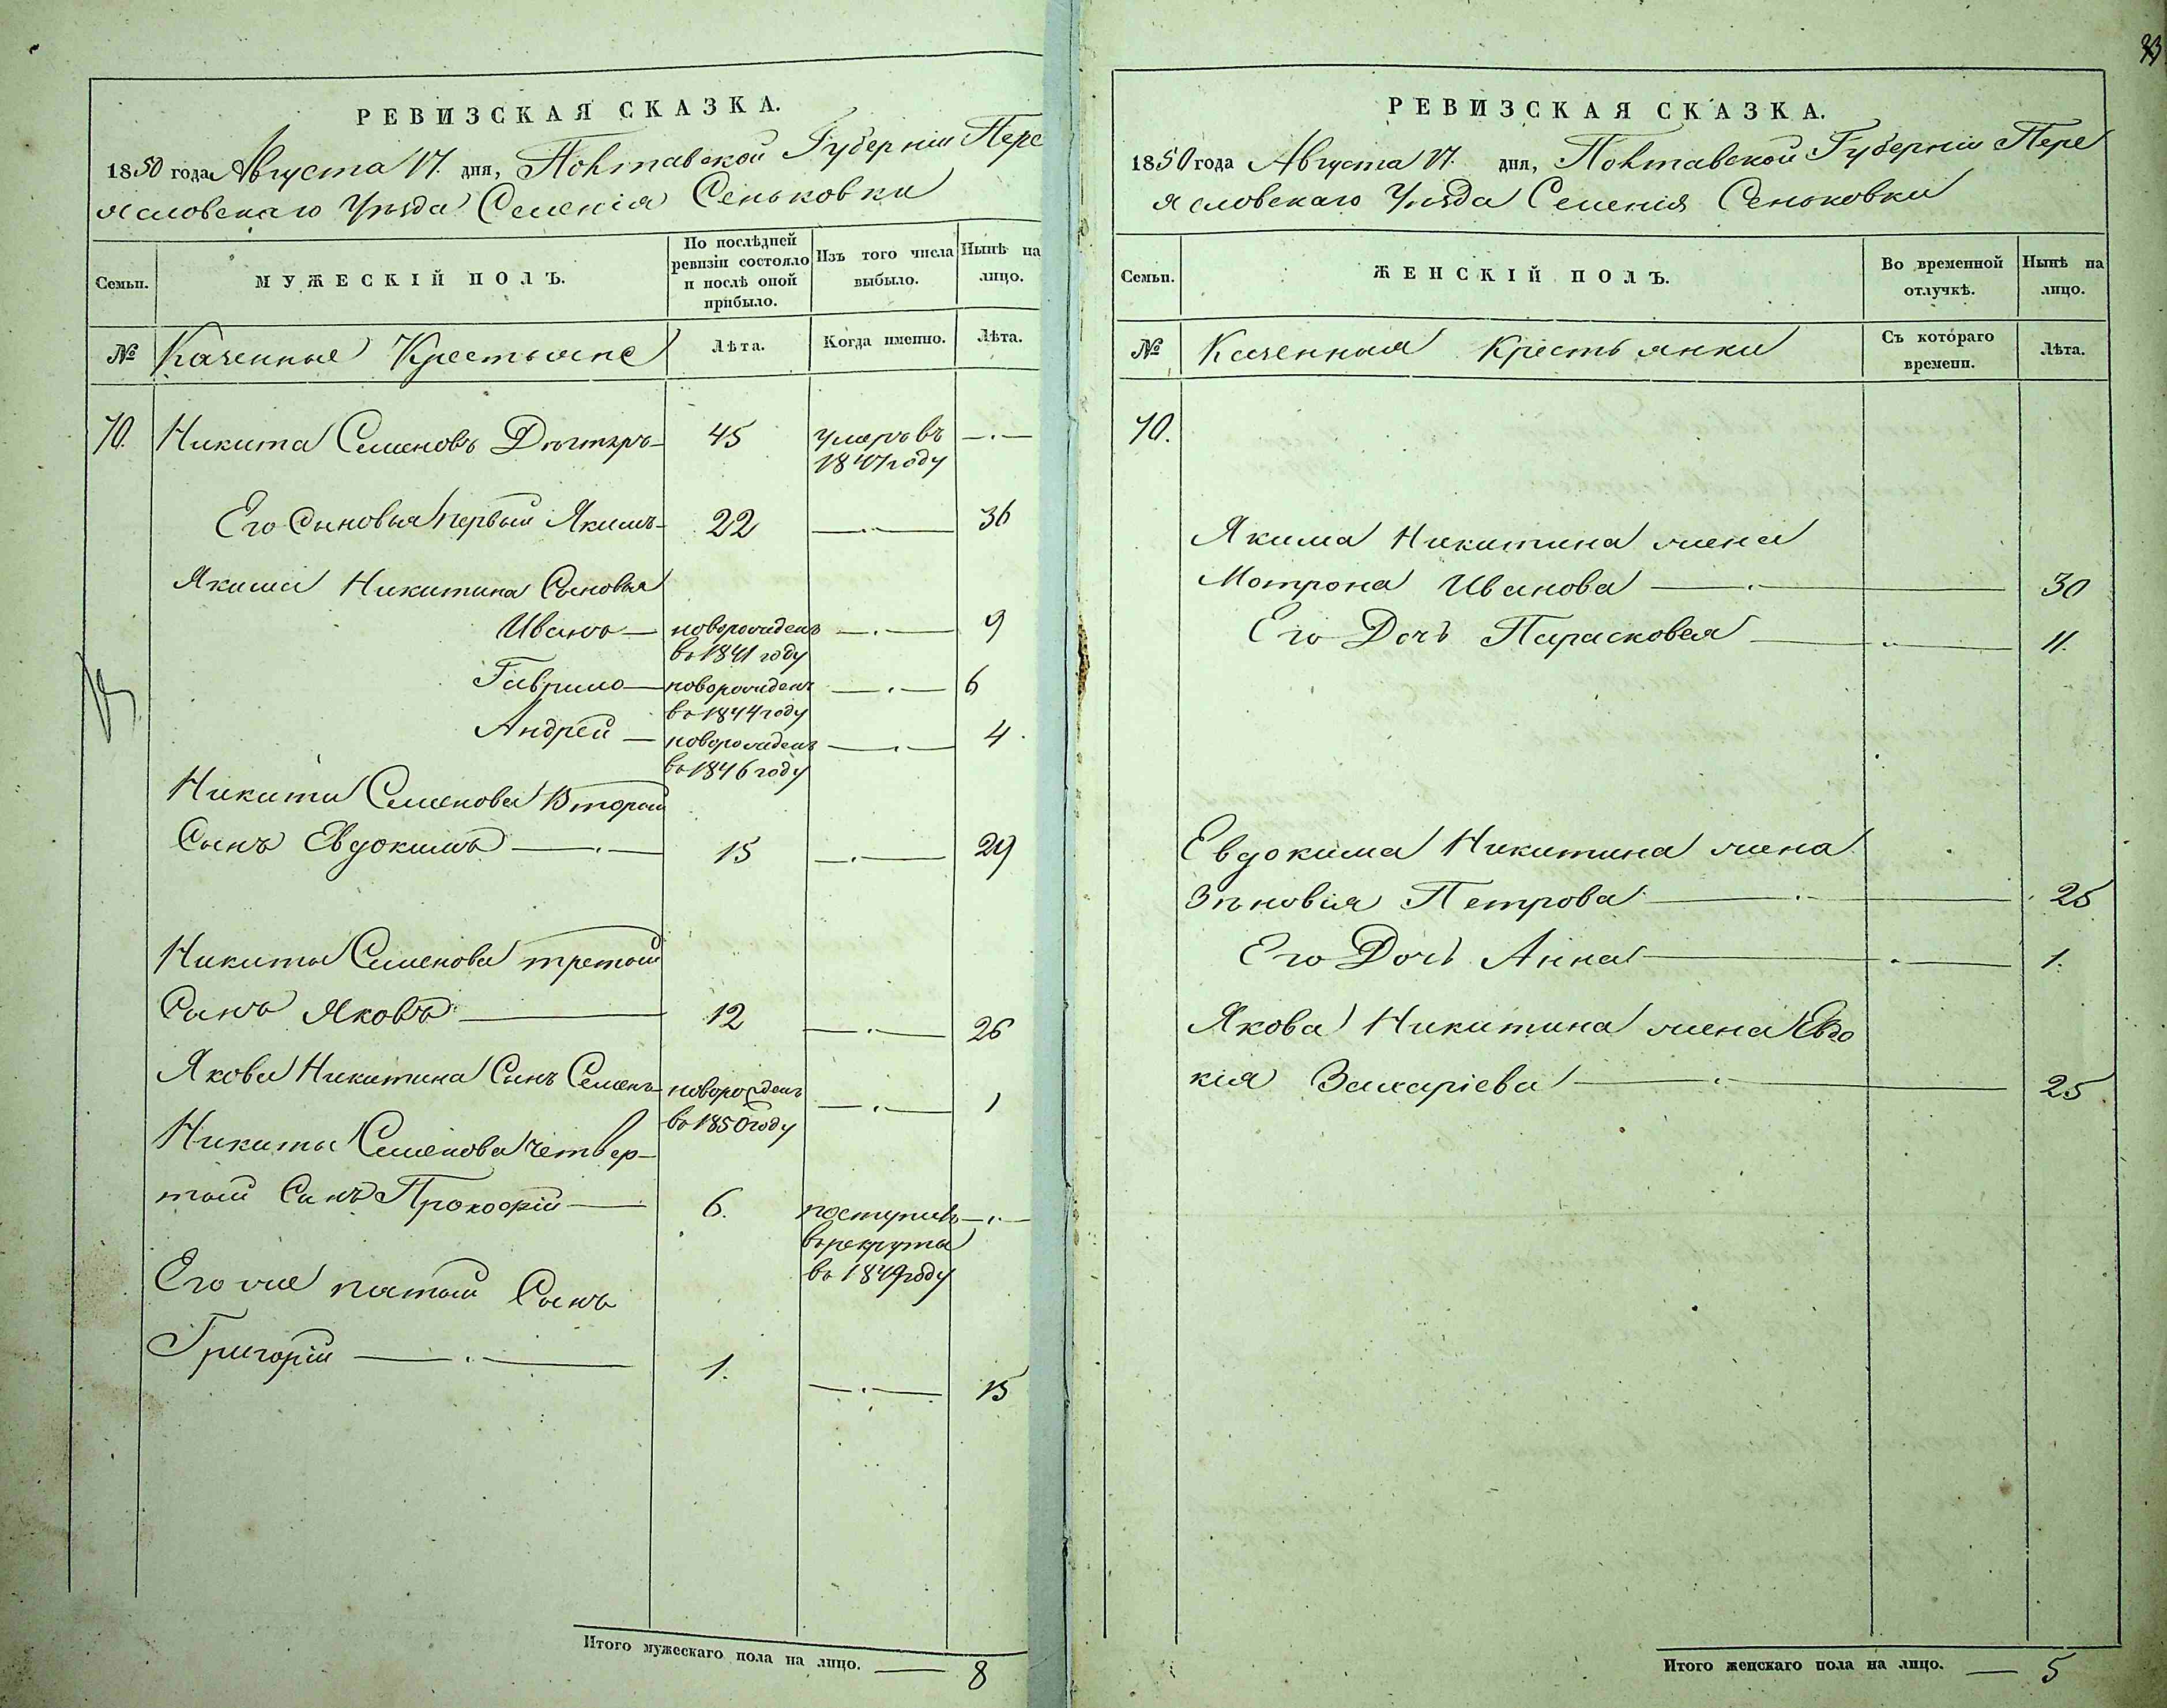 РЕВИЗСКАЯ СКАЗКА.
1850 года Августа 17. дня, Полтавской Губерніи Пере
ясловскаго Уѣзда Селенія Сеньковки
Семьи.
МУЖЕСКІЙ ПОЛЪ.
По послѣдней ревизіи состояло и послѣ оной прибыло.
Изъ того числа выбыло.
Нынѣ на лицо.
№ Казенные Крестьяне
Лѣта.
Когда именно.
Лѣта.
70. Никита Семеновъ 45 умеръ въ
1847 году
Его Сыновья первый Якимъ 22 36
Якима Никитина Сыновья
Иванъ новорожденъ 9
въ 1841 году
Гаврило новорожденъ 6
въ 1844 году
Андрей новорожденъ 4
въ 1846 году
Никиты Семенова Второй
Сынъ Евдокимъ 15 29
Никиты Семенова третій
Сынъ Яковъ 12 26
Якова Никитина Сынъ Семенъ новорожденъ 1
въ 1850 году
Никиты Семенова четвер-
тый Сынъ Прокофій 6. поступилъ
въ рекруты
въ 1849 году
Его же пятый Сынъ
Григорій 1. 15
Итого мужескаго пола на лицо. 8
РЕВИЗСКАЯ СКАЗКА.
1850 года Августа 17. дня, Полтавской Губерніи Пере
ясловскаго Уѣзда Селенія Сеньковки
Семьи.
ЖЕНСКІЙ ПОЛЪ.
Во временной отлучкѣ.
Нынѣ на лицо.
№ Казенныя Крестьянки
Съ котораго времени.
Лѣта.
70.
Якима Никитина жена
Мотрона Иванова 30
Его Дочь Парасковея 11.
Евдокима Никитина жена
Зѣновія Петрова 25
Его Дочь Анна 1.
Якова Никитина жена Евдо
кія Захаріева 25
Итого женскаго пола на лицо. 5